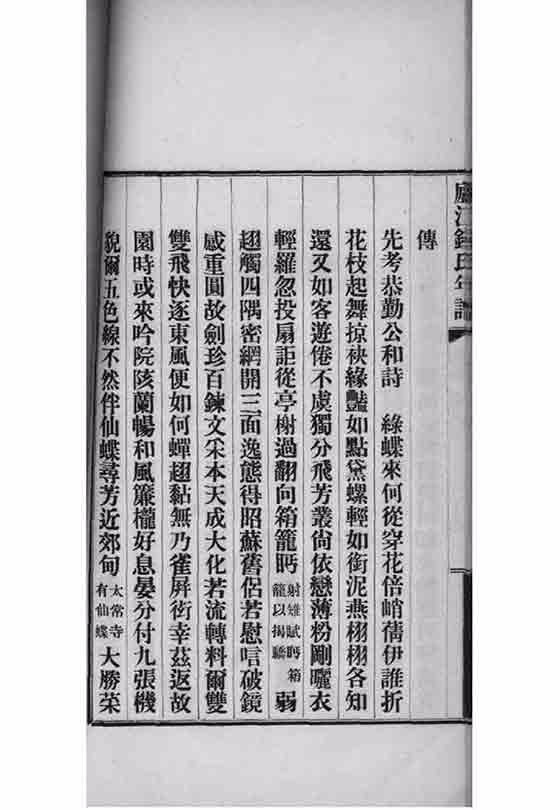 廬江錢氏年譜
傳
先考恭勤公和詩　綠蝶來何從穿花倍峭蒨伊誰折
花枝起舞掠袂緣豔如點黛螺輕如銜泥燕栩栩各知
還又如客遊倦不虞獨分飛芳叢尙依戀薄粉剛曬衣
輕羅忽投扇詎從亭榭過翻向箱籠眄射雉賦眄箱籠以揭驕弱
翅觸四隅密網開三面逸態得昭蘇舊侶若慰唁破鏡
感重圓故劍珍百鍊文采本天成大化若流轉料爾雙
雙飛快逐東風便如何蟬翅黏無乃雀屏衒幸茲返故
園時或來吟院陔蘭暢和風簾櫳好息晏分付九張機
貌爾五色線不然伴仙蝶尋芳近郊甸太常寺有仙蝶大勝茶